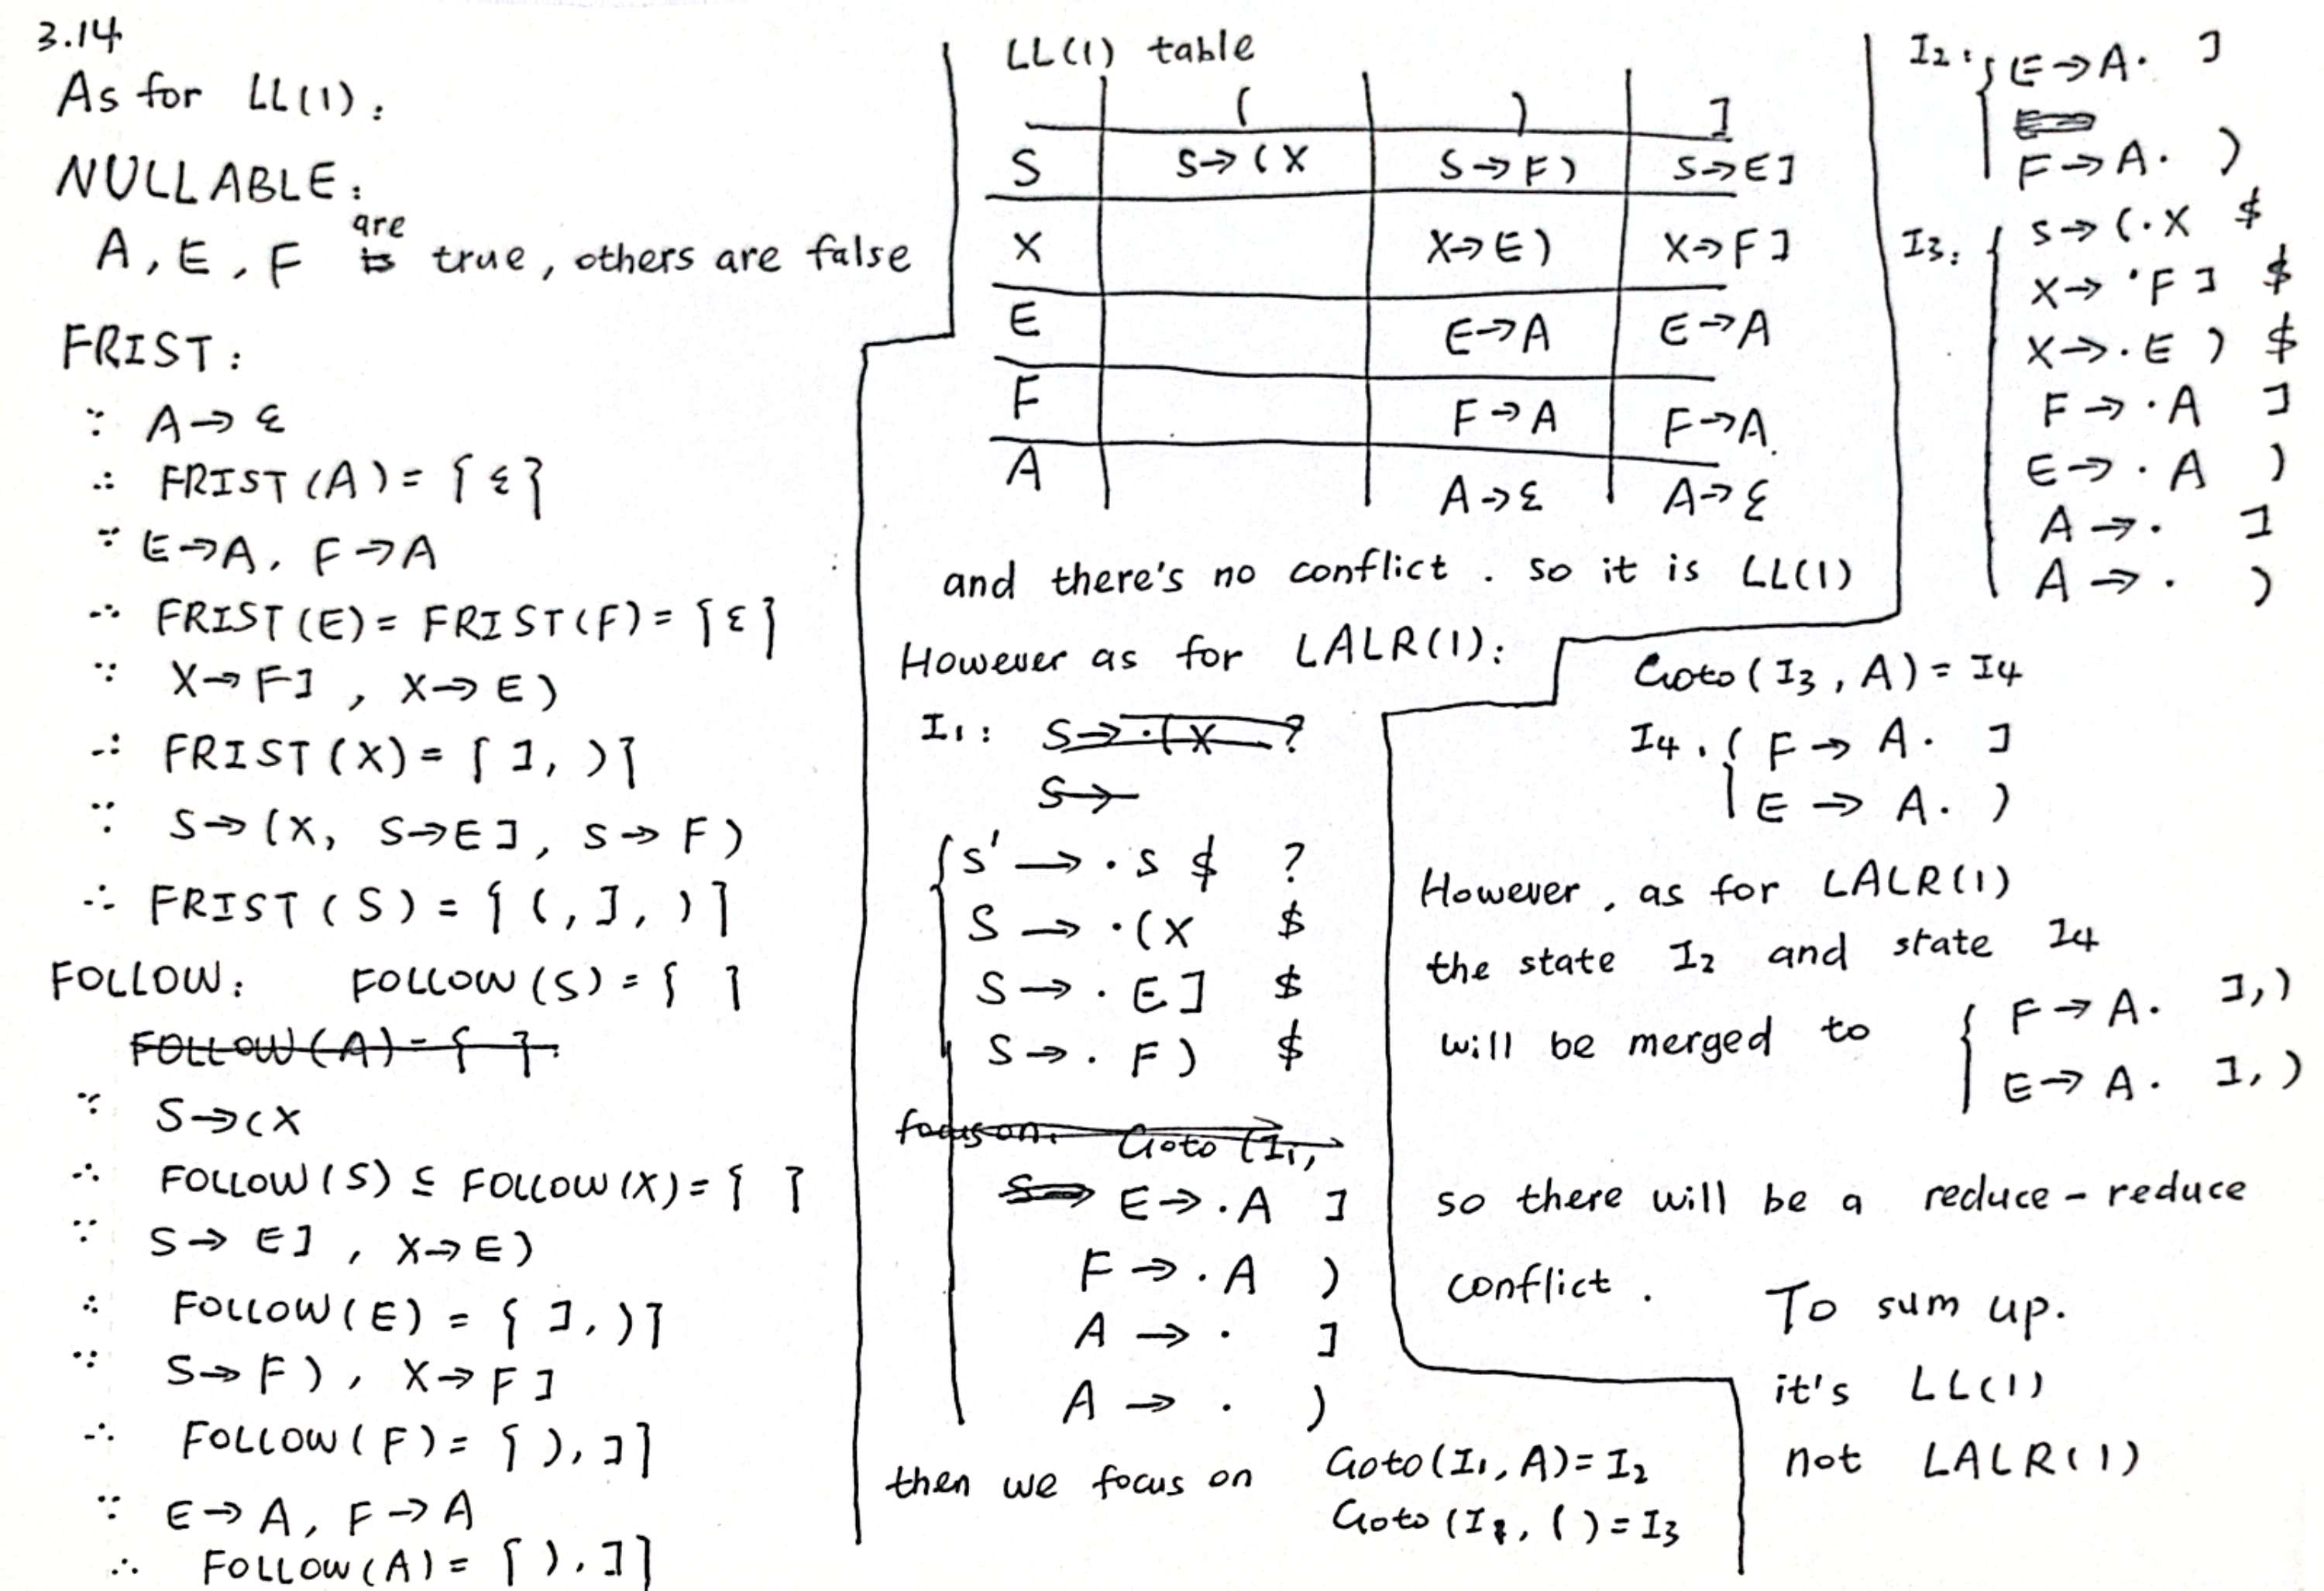 3.14
As for LL(1):
NULLABLE:
A, E, F are true, others are false
FRIST:
∵ A→ε
∴ FRIST(A) = {ε}
∵ E→A, F→A
∴ FRIST(E) = FRIST(F) = {ε}
∵ X→F], X→E)
∴ FRIST(X) = {], )}
∵ S→(X, S→E], S→F)
∴ FRIST(S) = {(, ], )}
FOLLOW: FOLLOW(S) = { }
FOLLOW(A) = { }
∵ S→(X
∴ FOLLOW(S) ⊆ FOLLOW(X) = { }
∵ S→E], X→E)
∴ FOLLOW(E) = {], )}
∵ S→F), X→F]
∴ FOLLOW(F) = {), ]}
∵ E→A, F→A
∴ FOLLOW(A) = {), ]}
LL(1) table
( ) ]
S S→(X S→F) S→E]
X X→E) X→F]
E E→A E→A
F F→A F→A
A A→ε A→ε
and there's no conflict. so it is LL(1)
However as for LALR(1):
I1: S→·(X ?
S→
S'→·S$ ?
S→·(X $
S→·E] $
S→·F) $
focus on. Goto(I1,
E→·A ]
F→·A )
A→· ]
A→· )
then we focus on Goto(I1, A) = I2
Goto(I1, () = I3
I2: { E→A· ]
F→A· )
I3: { S→(·X $
X→·F] $
X→·E) $
F→·A ]
E→·A )
A→· ]
A→· )
Goto(I3, A) = I4
I4: { F→A· ]
E→A· )
However, as for LALR(1)
the state I2 and state I4
will be merged to { F→A· ],)
E→A· ],)
so there will be a reduce-reduce
conflict.
To sum up.
it's LL(1)
not LALR(1)